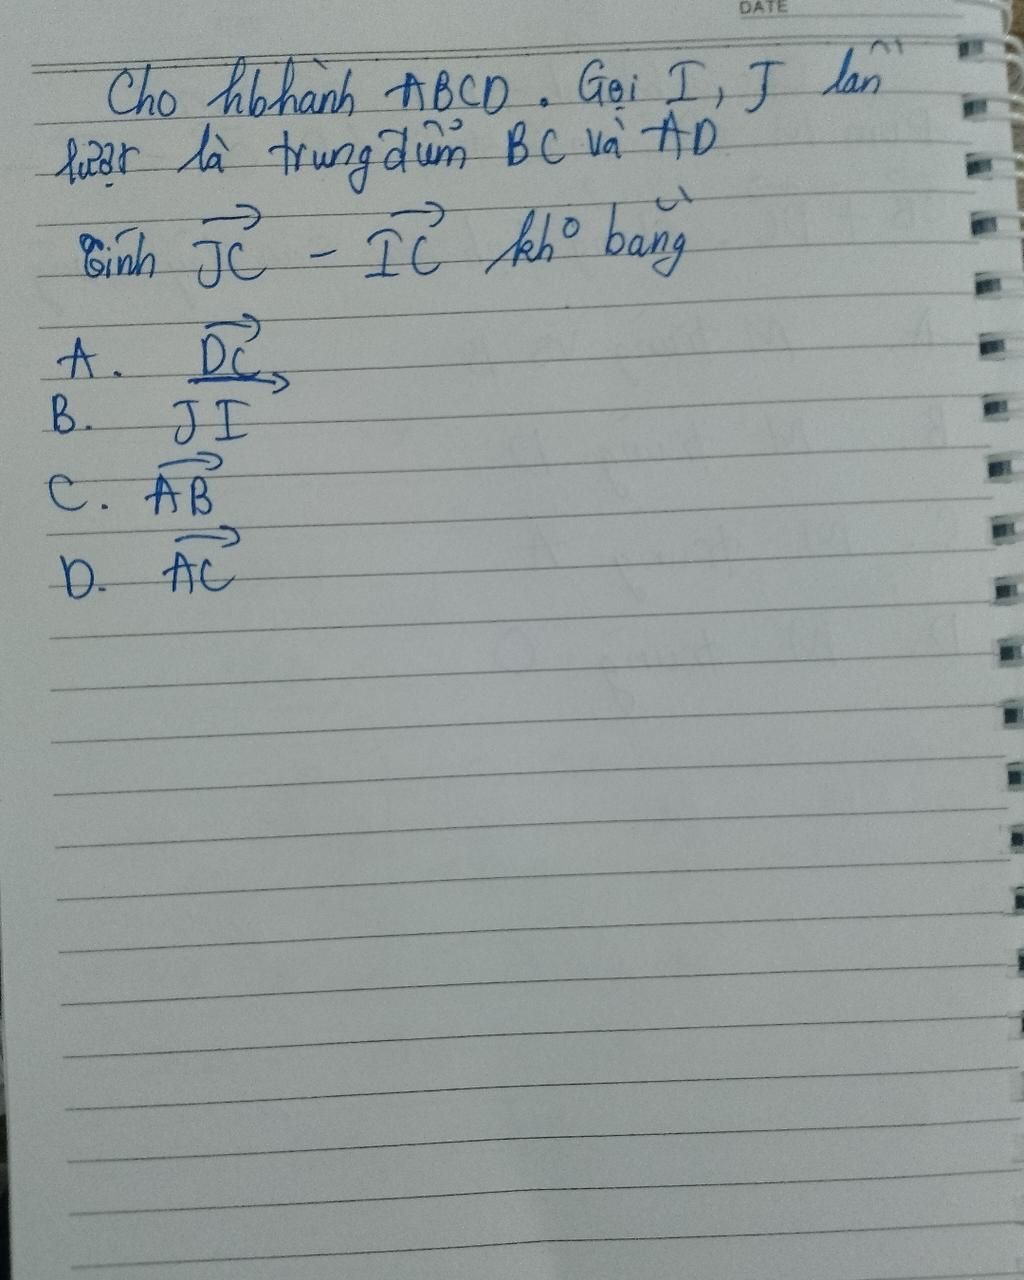 DATE
Cho hbhành ABCD. Gọi I, J lần
lượt là trung điểm BC và AD
Tính JC - IC kh° bằng
A. DC
B. JI
C. AB
D. AC